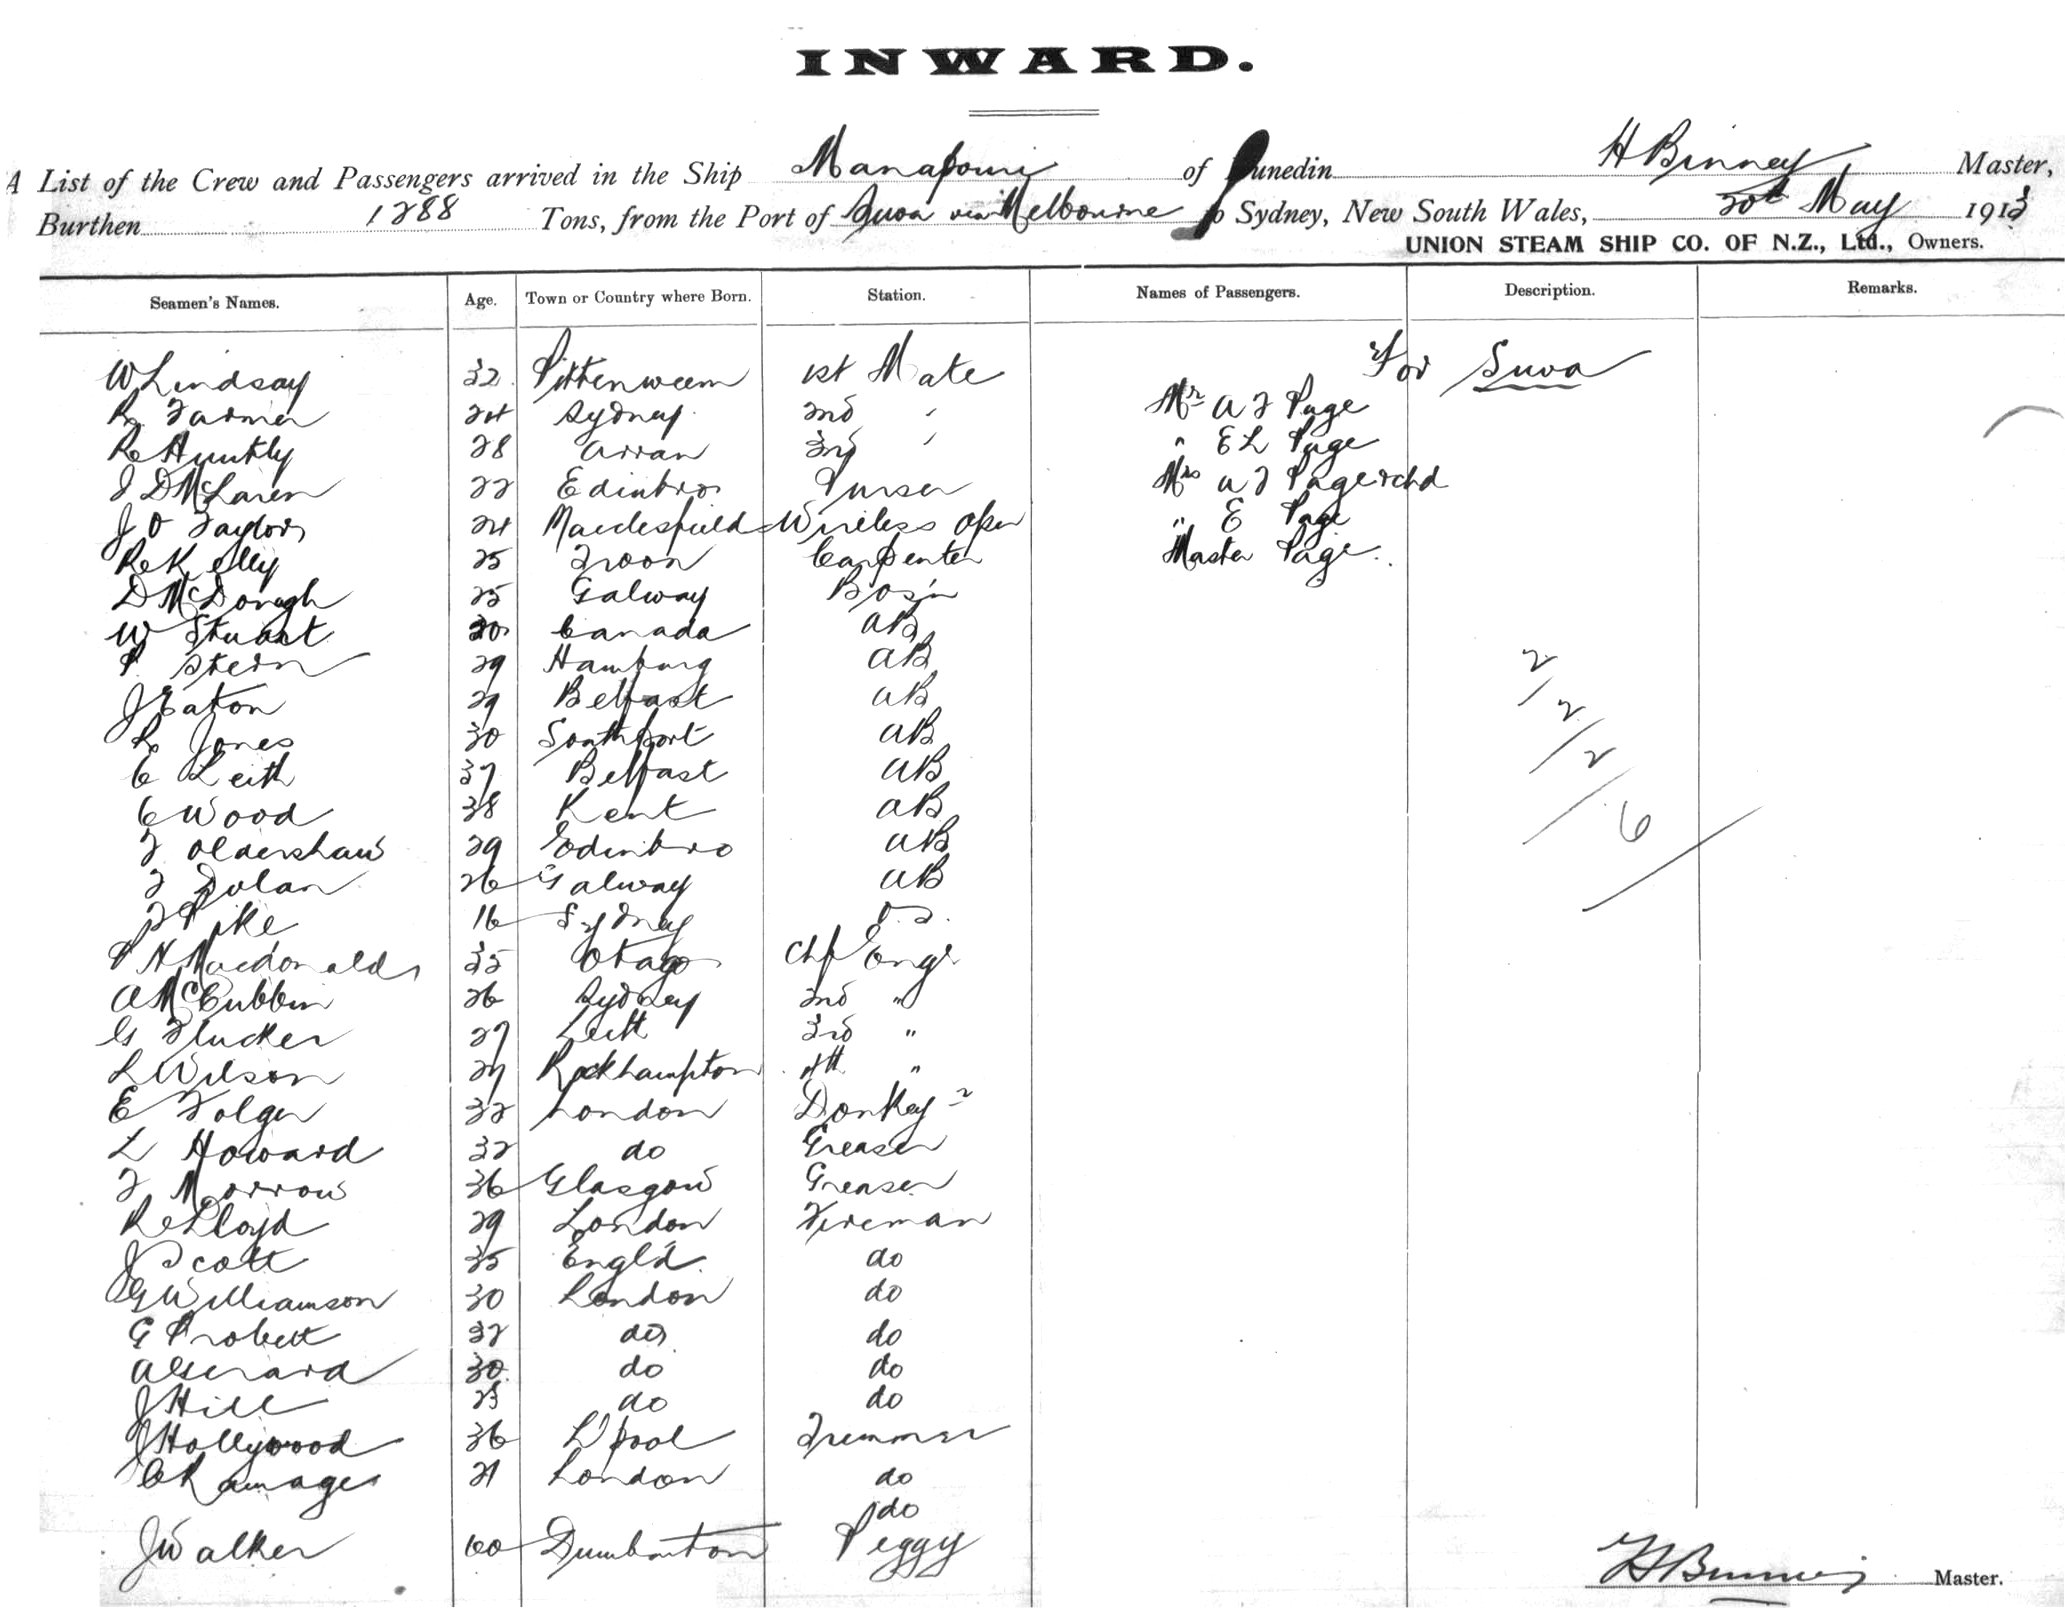 INWARD.
A List of the Crew and Passengers arrived in the Ship Manapouri of Dunedin H Binney Master,
Burthen 1288 Tons, from the Port of Suva via Melbourne to Sydney, New South Wales, 20th May 1913
UNION STEAM SHIP CO. OF N.Z., Ltd., Owners.
Seamen's Names. Age. Town or Country where Born. Station. Names of Passengers. Description. Remarks.
For Suva
W Lindsay 32 Pittenweem 1st Mate
R Farmer 24 Sydney 2nd " Mr A J Page
R Huntly 28 Arran 3rd " " E L Page
J D McLaren 22 Edinbro Purser Mrs A J Page & chd
J O Taylor 24 Macclesfield Wireless Oper " E Page
R Kelly 25 Troon Carpenter Master Page.
D McDonagh 25 Galway Bos'n
W Stuart 30 Canada AB
P Stern 29 Hamburg AB
J Eaton 29 Belfast AB
R Jones 30 Southport AB
C Leith 37 Belfast AB
C Wood 38 Kent AB
J Oldershaw 29 Edinbro AB
J Dolan 26 Galway AB
J Pike 16 Sydney O.S.
P N Macdonald 35 Otago Chf Engr
A McCubbin 26 Sydney 2nd "
G Flucker 27 Leith 3rd "
L Wilson 27 Rockhampton 4th "
E Folger 32 London Donkey
L Howard 32 do Greaser
J Morrow 36 Glasgow Greaser
R Lloyd 29 London Fireman
J Scott 35 Engl'd. do
G Williamson 30 London do
G Probett 32 do do
A Gerard 30 do do
J Hill 23 do do
J Hollywood 36 L'pool Trimmer
C Ramage 21 London do
do
J Walker 60 Dumbarton Peggy
2/2/2/6/
H Binney Master.